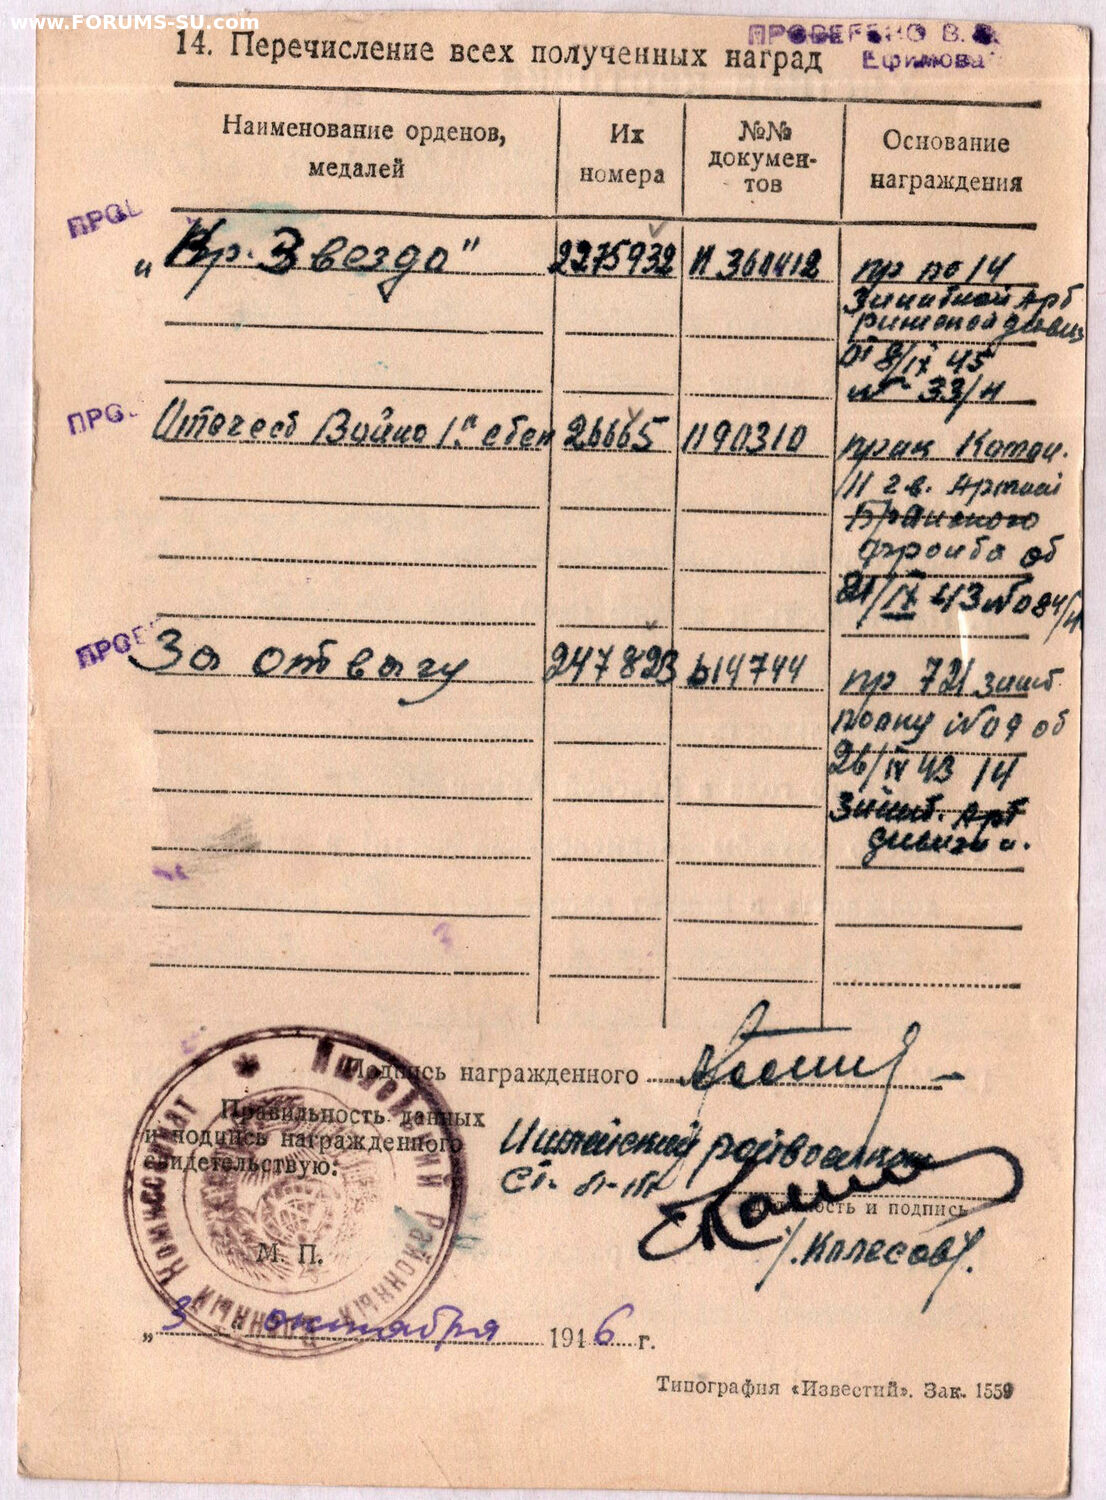 www.FORUMS-SU.com
ПРОВЕРЕНО В. В.
Ефимова
14. Перечисление всех полученных наград
Наименование орденов, медалей
Их номера
№№ документов
Основание награждения
ПРОВ
„Кр. Звезда"
2275932
И 360412
пр по 14
Зинитной Арт
рижской дивиз
от 8/IX 45
№ 33/н
ПРО
Отечеств Война 1й степ
26665
1190310
прик Коман.
11 гв. Армией
Брянского
фронта от
21/IX 43 №084/н
ПРОВЕ
За отвагу
247823
Б14744
пр 721 зинт.
полку №09 от
26/IV 43 14
Зинит. Арт
дивизии.
Подпись награжденного
Правильность данных
и подпись награжденного
свидетельствую:
райвоенком
Ст. л-нт
Должность и подпись
/.Колесов/.
М. П.
Районный Военный Комиссариат
„3" октября 1946 г.
Типография «Известий». Зак. 1559